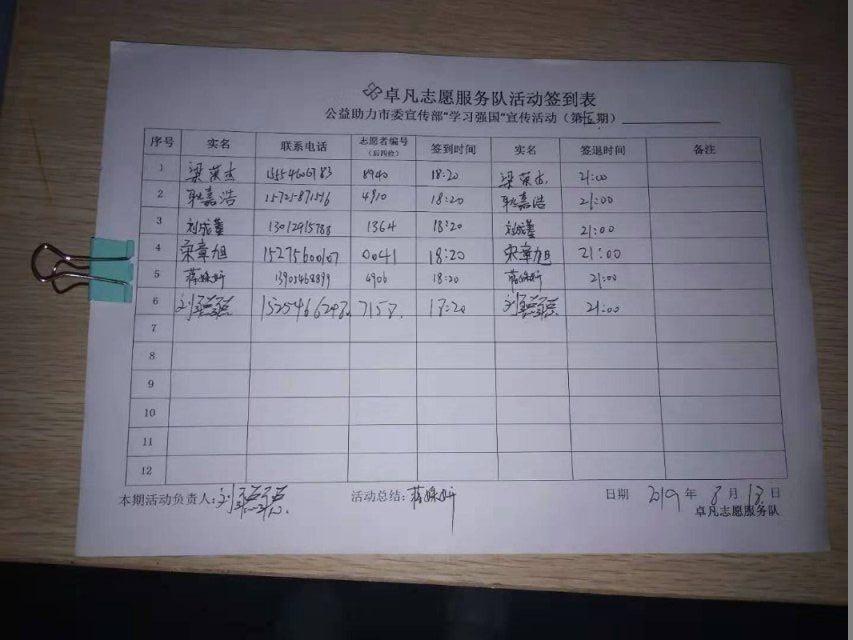 卓凡志愿服务队活动签到表
公益助力市委宣传部"学习强国"宣传活动（第 期）
序号 实名 联系电话 志愿者编号（后四位） 签到时间 实名 签退时间 备注
1 梁荣杰 8940 18:20 梁荣杰 21:00
2 耿嘉浩 4910 18:20 耿嘉浩 21:00
3 13012915788 1364 18:20 21:00
4 宋章旭 15275600107 0041 18:20 宋章旭 21:00
5 13905468899 6906 18:20 21:00
6 刘强强 7158 17:20 刘强强 21:00
7
8
9
10
11
12
本期活动负责人:刘强强 活动总结: 日期 2019年8月13日
卓凡志愿服务队